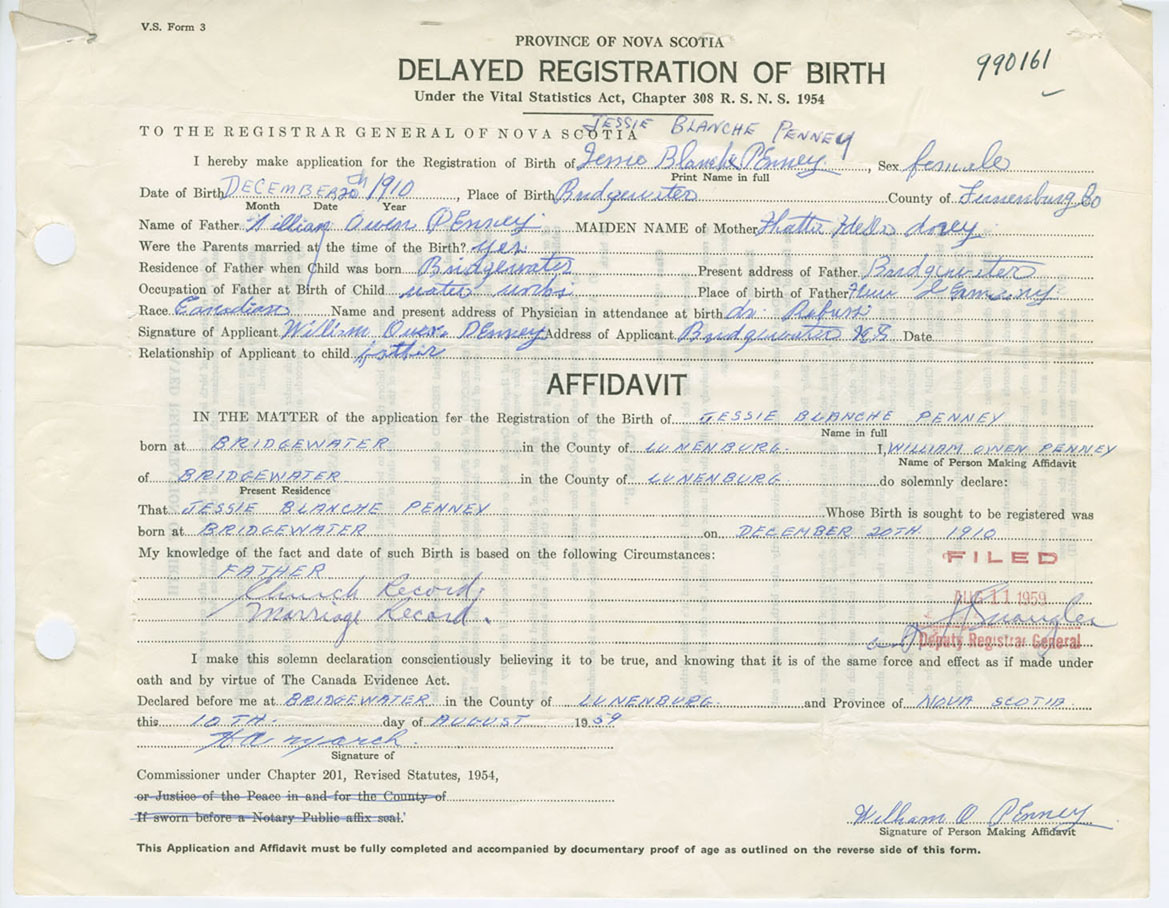 V.S. Form 3
PROVINCE OF NOVA SCOTIA
990161
DELAYED REGISTRATION OF BIRTH
Under the Vital Statistics Act, Chapter 308 R. S. N. S. 1954
JESSIE BLANCHE PENNEY
TO THE REGISTRAR GENERAL OF NOVA SCOTIA
I hereby make application for the Registration of Birth of Jessie Blanche PEnney, Sex female
Print Name in full
Date of Birth DECEMBER 20th 1910, Place of Birth Bridgewater County of Lunenburg Co
Month Date Year
Name of Father William Owen PEnney MAIDEN NAME of Mother
Were the Parents married at the time of the Birth? yes
Residence of Father when Child was born Bridgewater Present address of Father Bridgewater
Occupation of Father at Birth of Child water works Place of birth of Father
Race Canadian Name and present address of Physician in attendance at birth dr.
Signature of Applicant William Owen PEnney Address of Applicant Bridgewater N.S Date
Relationship of Applicant to child father
AFFIDAVIT
IN THE MATTER of the application for the Registration of the Birth of JESSIE BLANCHE PENNEY
Name in full
born at BRIDGEWATER in the County of LUNENBURG. I, WILLIAM OWEN PENNEY
Name of Person Making Affidavit
of BRIDGEWATER in the County of LUNENBURG do solemnly declare:
Present Residence
That JESSIE BLANCHE PENNEY Whose Birth is sought to be registered was
born at BRIDGEWATER on DECEMBER 20TH 1910
My knowledge of the fact and date of such Birth is based on the following Circumstances:
FILED
FATHER
Church Record,
AUG 11 1959
Marriage Record.
Deputy Registrar General
I make this solemn declaration conscientiously believing it to be true, and knowing that it is of the same force and effect as if made under
oath and by virtue of The Canada Evidence Act.
Declared before me at BRIDGEWATER in the County of LUNENBURG and Province of NOVA SCOTIA
this 10TH. day of AUGUST 1959
Signature of
Commissioner under Chapter 201, Revised Statutes, 1954,
or Justice of the Peace in and for the County of
'If sworn before a Notary Public affix seal.'
William O PEnney
Signature of Person Making Affidavit
This Application and Affidavit must be fully completed and accompanied by documentary proof of age as outlined on the reverse side of this form.